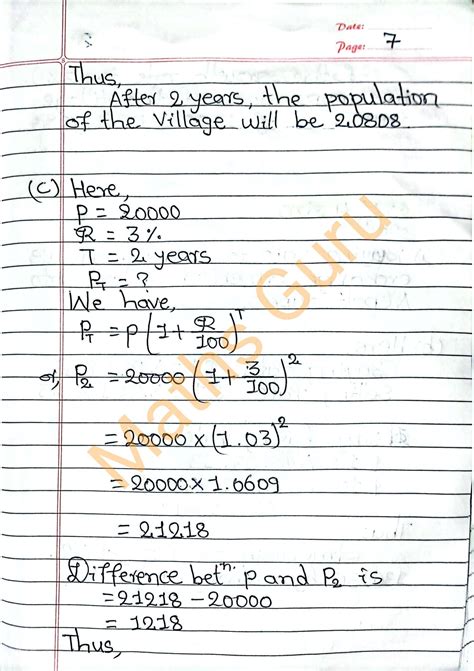 Date:
Page: 7
Thus,
After 2 years, the population
of the Village will be 20808.
(C) Here,
P = 20000
R = 3%
T = 2 years
P_T = ?
We have,
P_T = P(1 + R/100)^T
or, P_2 = 20000 (1 + 3/100)^2
= 20000 × (1.03)^2
= 20000 × 1.0609
= 21218
Difference betⁿ. P and P_2 is
= 21218 - 20000
= 1218
Thus,
Maths Guru